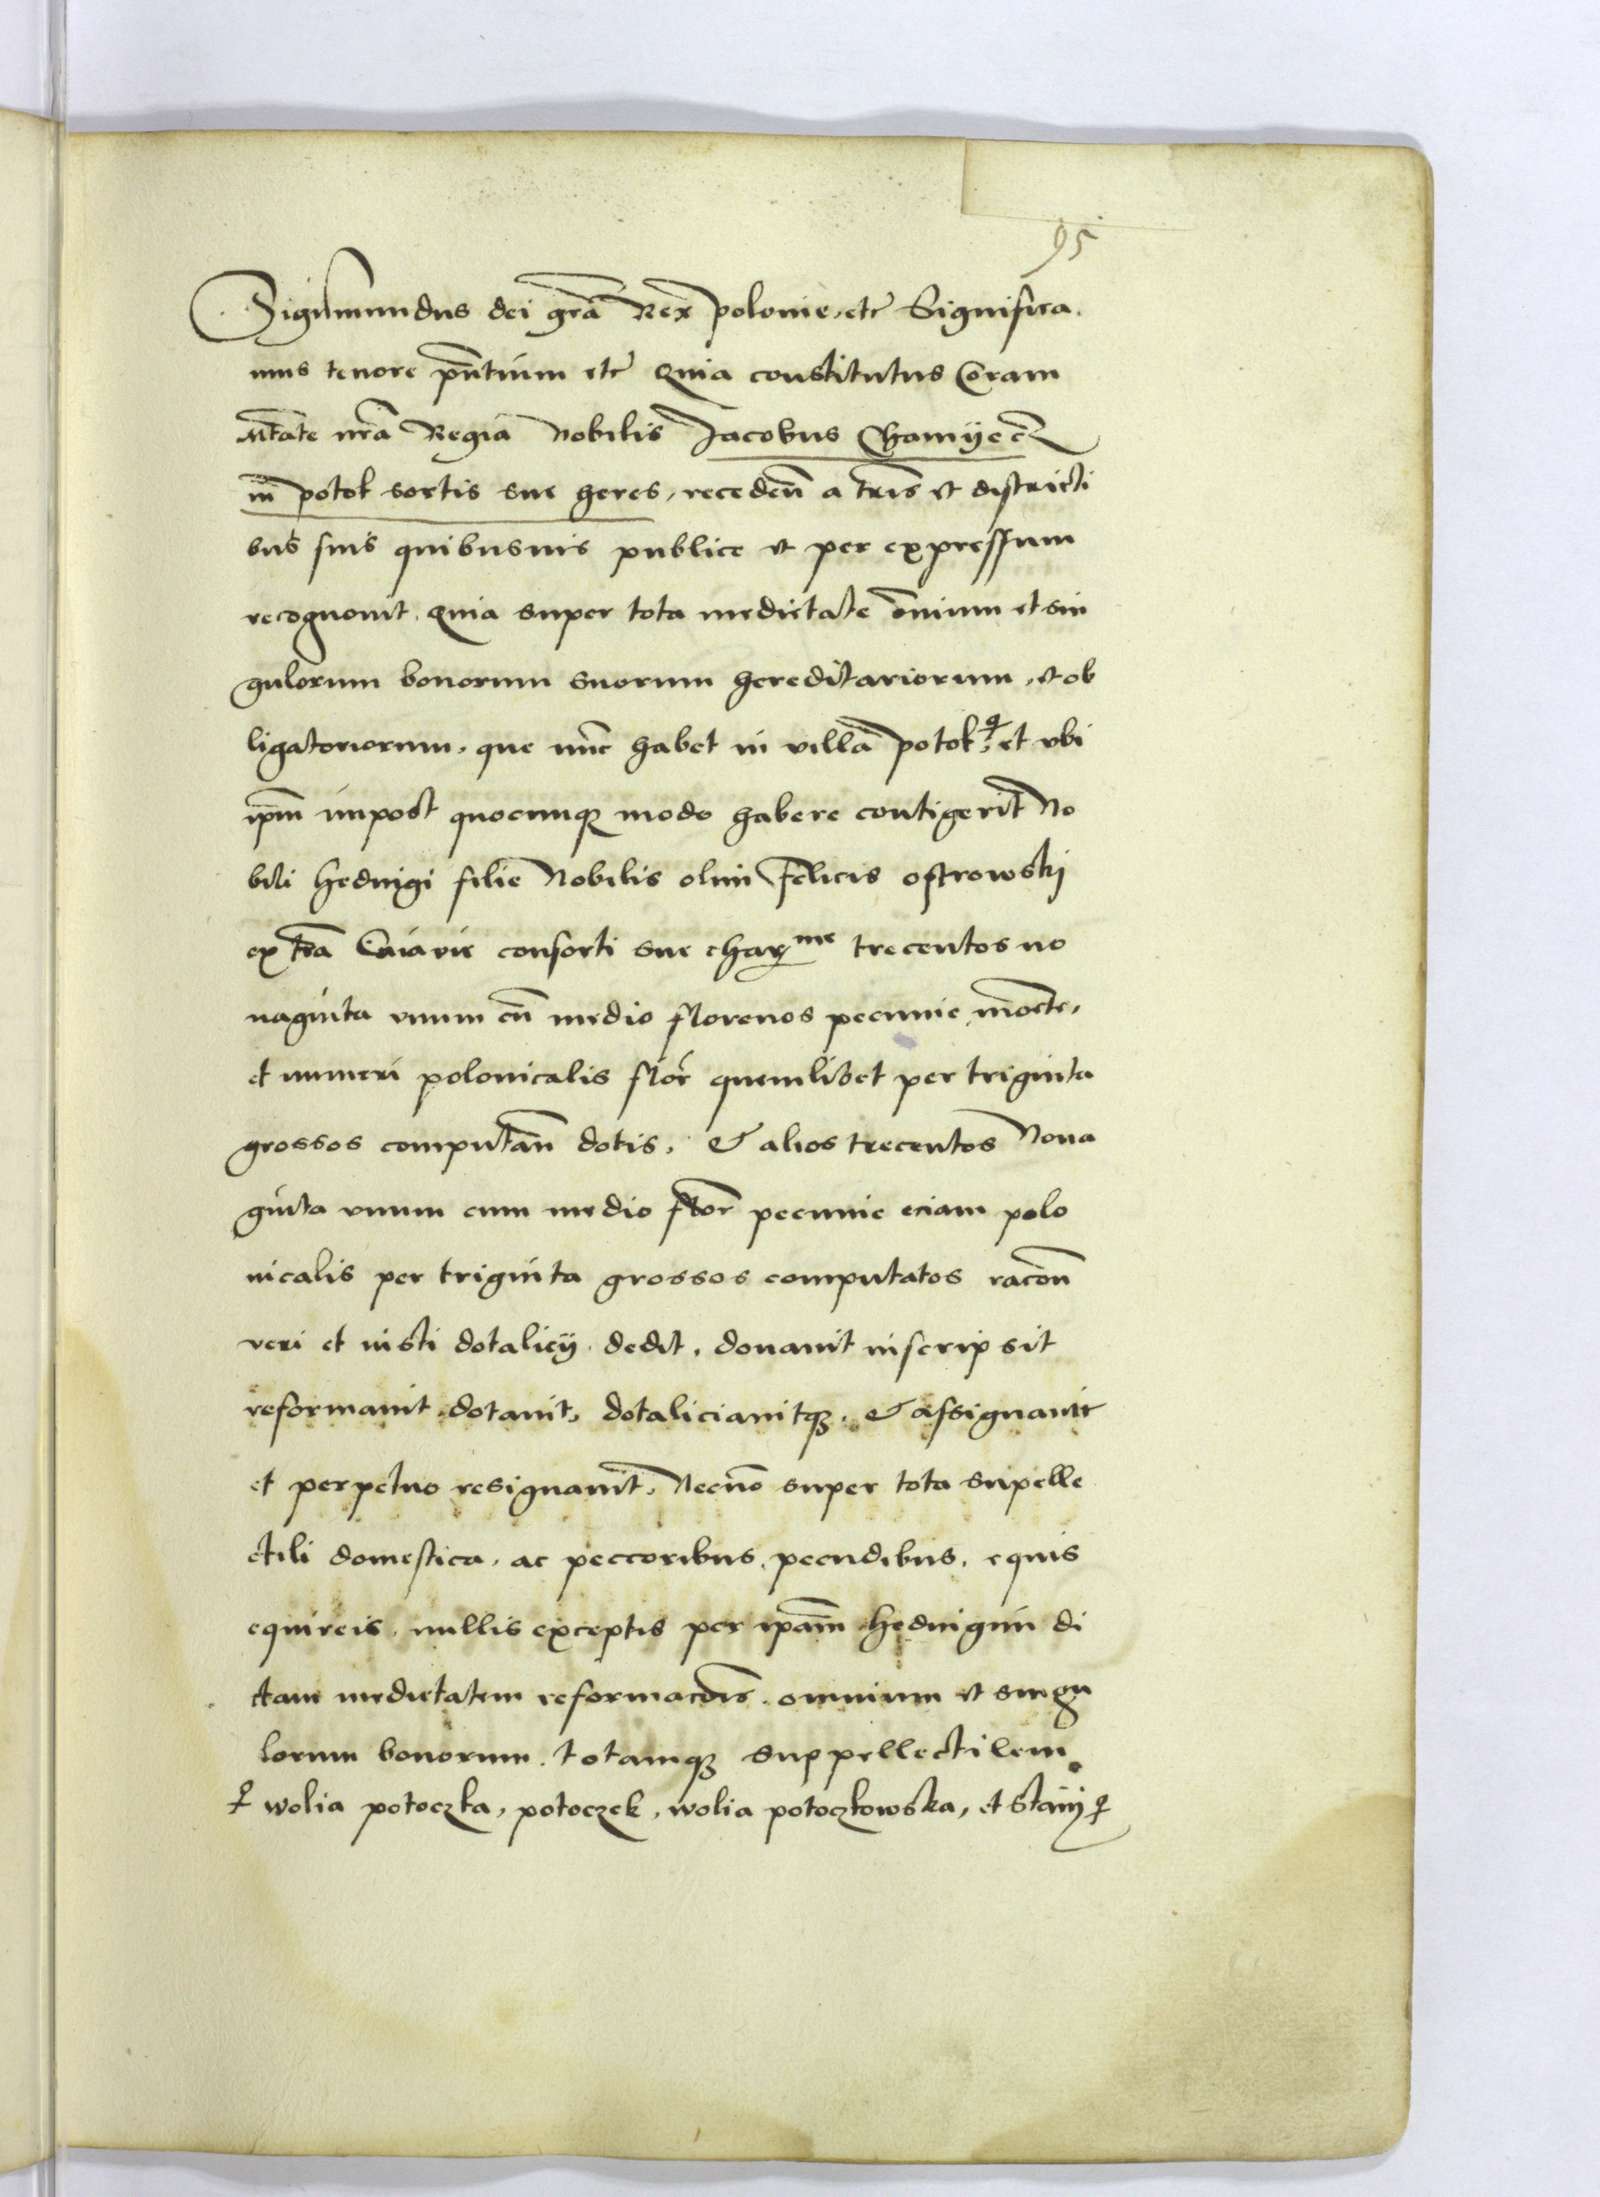 95
Sigismundus dei gra Rex polonie, etc Significa
mus tenore pntium etc Quia constitutus Coram
Mtate nra Regia Nobilis Jacobus
in potok sortis sue heres, receden a tris et districti
bus suis quibusuis publice et per expressum
recognouit. Quia super tota medietate omnium et sin
gulorum bonorum suorum hereditariorum, et ob
ligatoriorum, que nunc habet in villa potok et vbi
ipm inpost quocunque modo habere contigerit No
bili Heduigi filie Nobilis olim Felicis Ostrowskj
ex tra Cuiavie consorti sue charme trecentos no
naginta vnum cu medio florenos pecunie monete,
et numeri polonicalis flor quemlibet per triginta
grossos computan dotis, & alios trecentos Nona
ginta vnum cum medio flor pecunie eciam polo
nicalis per triginta grossos computatos racon
veri et iusti dotalicij dedit, donauit inscripsit
reformauit, dotauit, dotaliciauitque, & assignauit
et perpetuo resignauit, Necno super tota supelle
ctili domestica, ac peccoribus, pecudibus, equis
equireis, nullis exceptis per ipam Heduigim di
ctam medietatem reformacois omnium et singu
lorum bonorum, totamque suppellectilem
wolia potoczka, potoczek, wolia potoczkowska, et